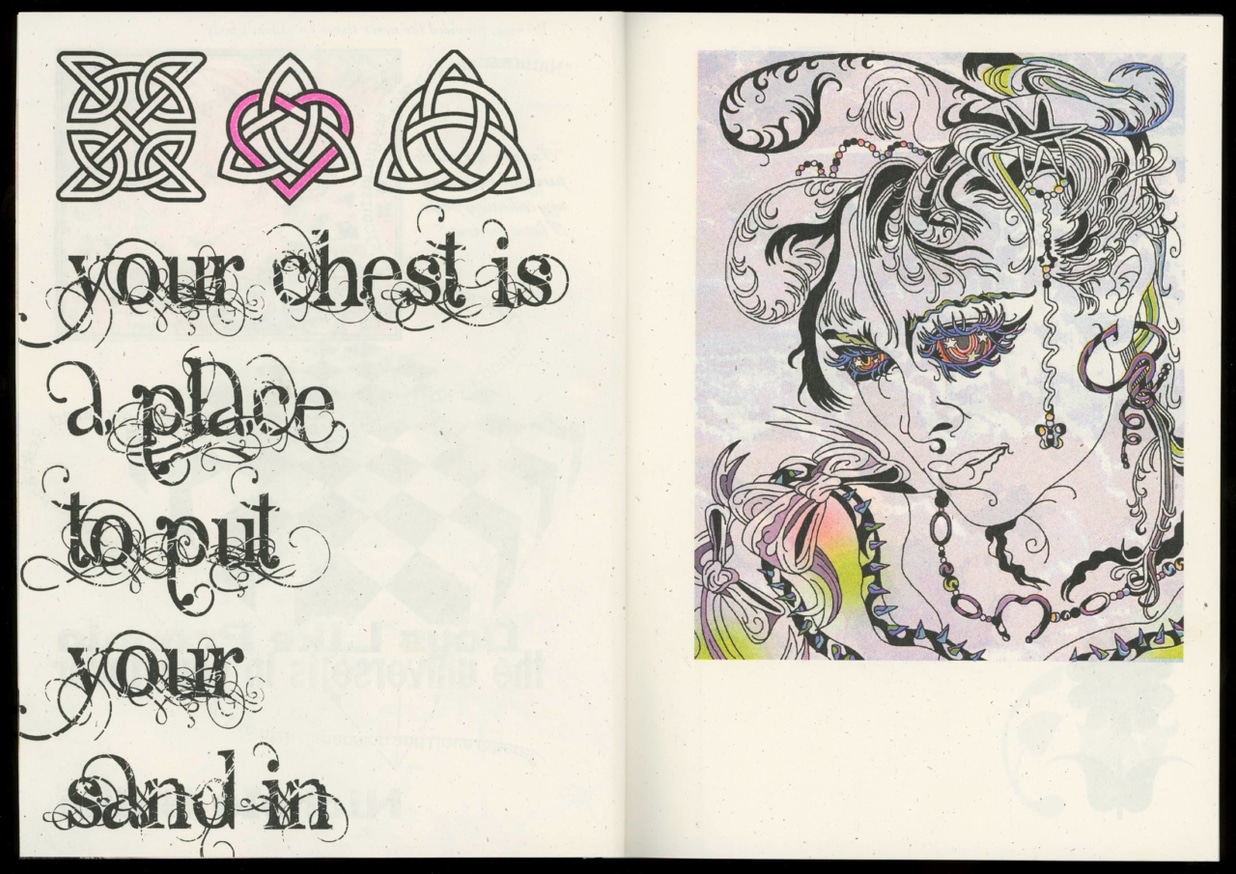 your chest is
a place
to put
your
sand in